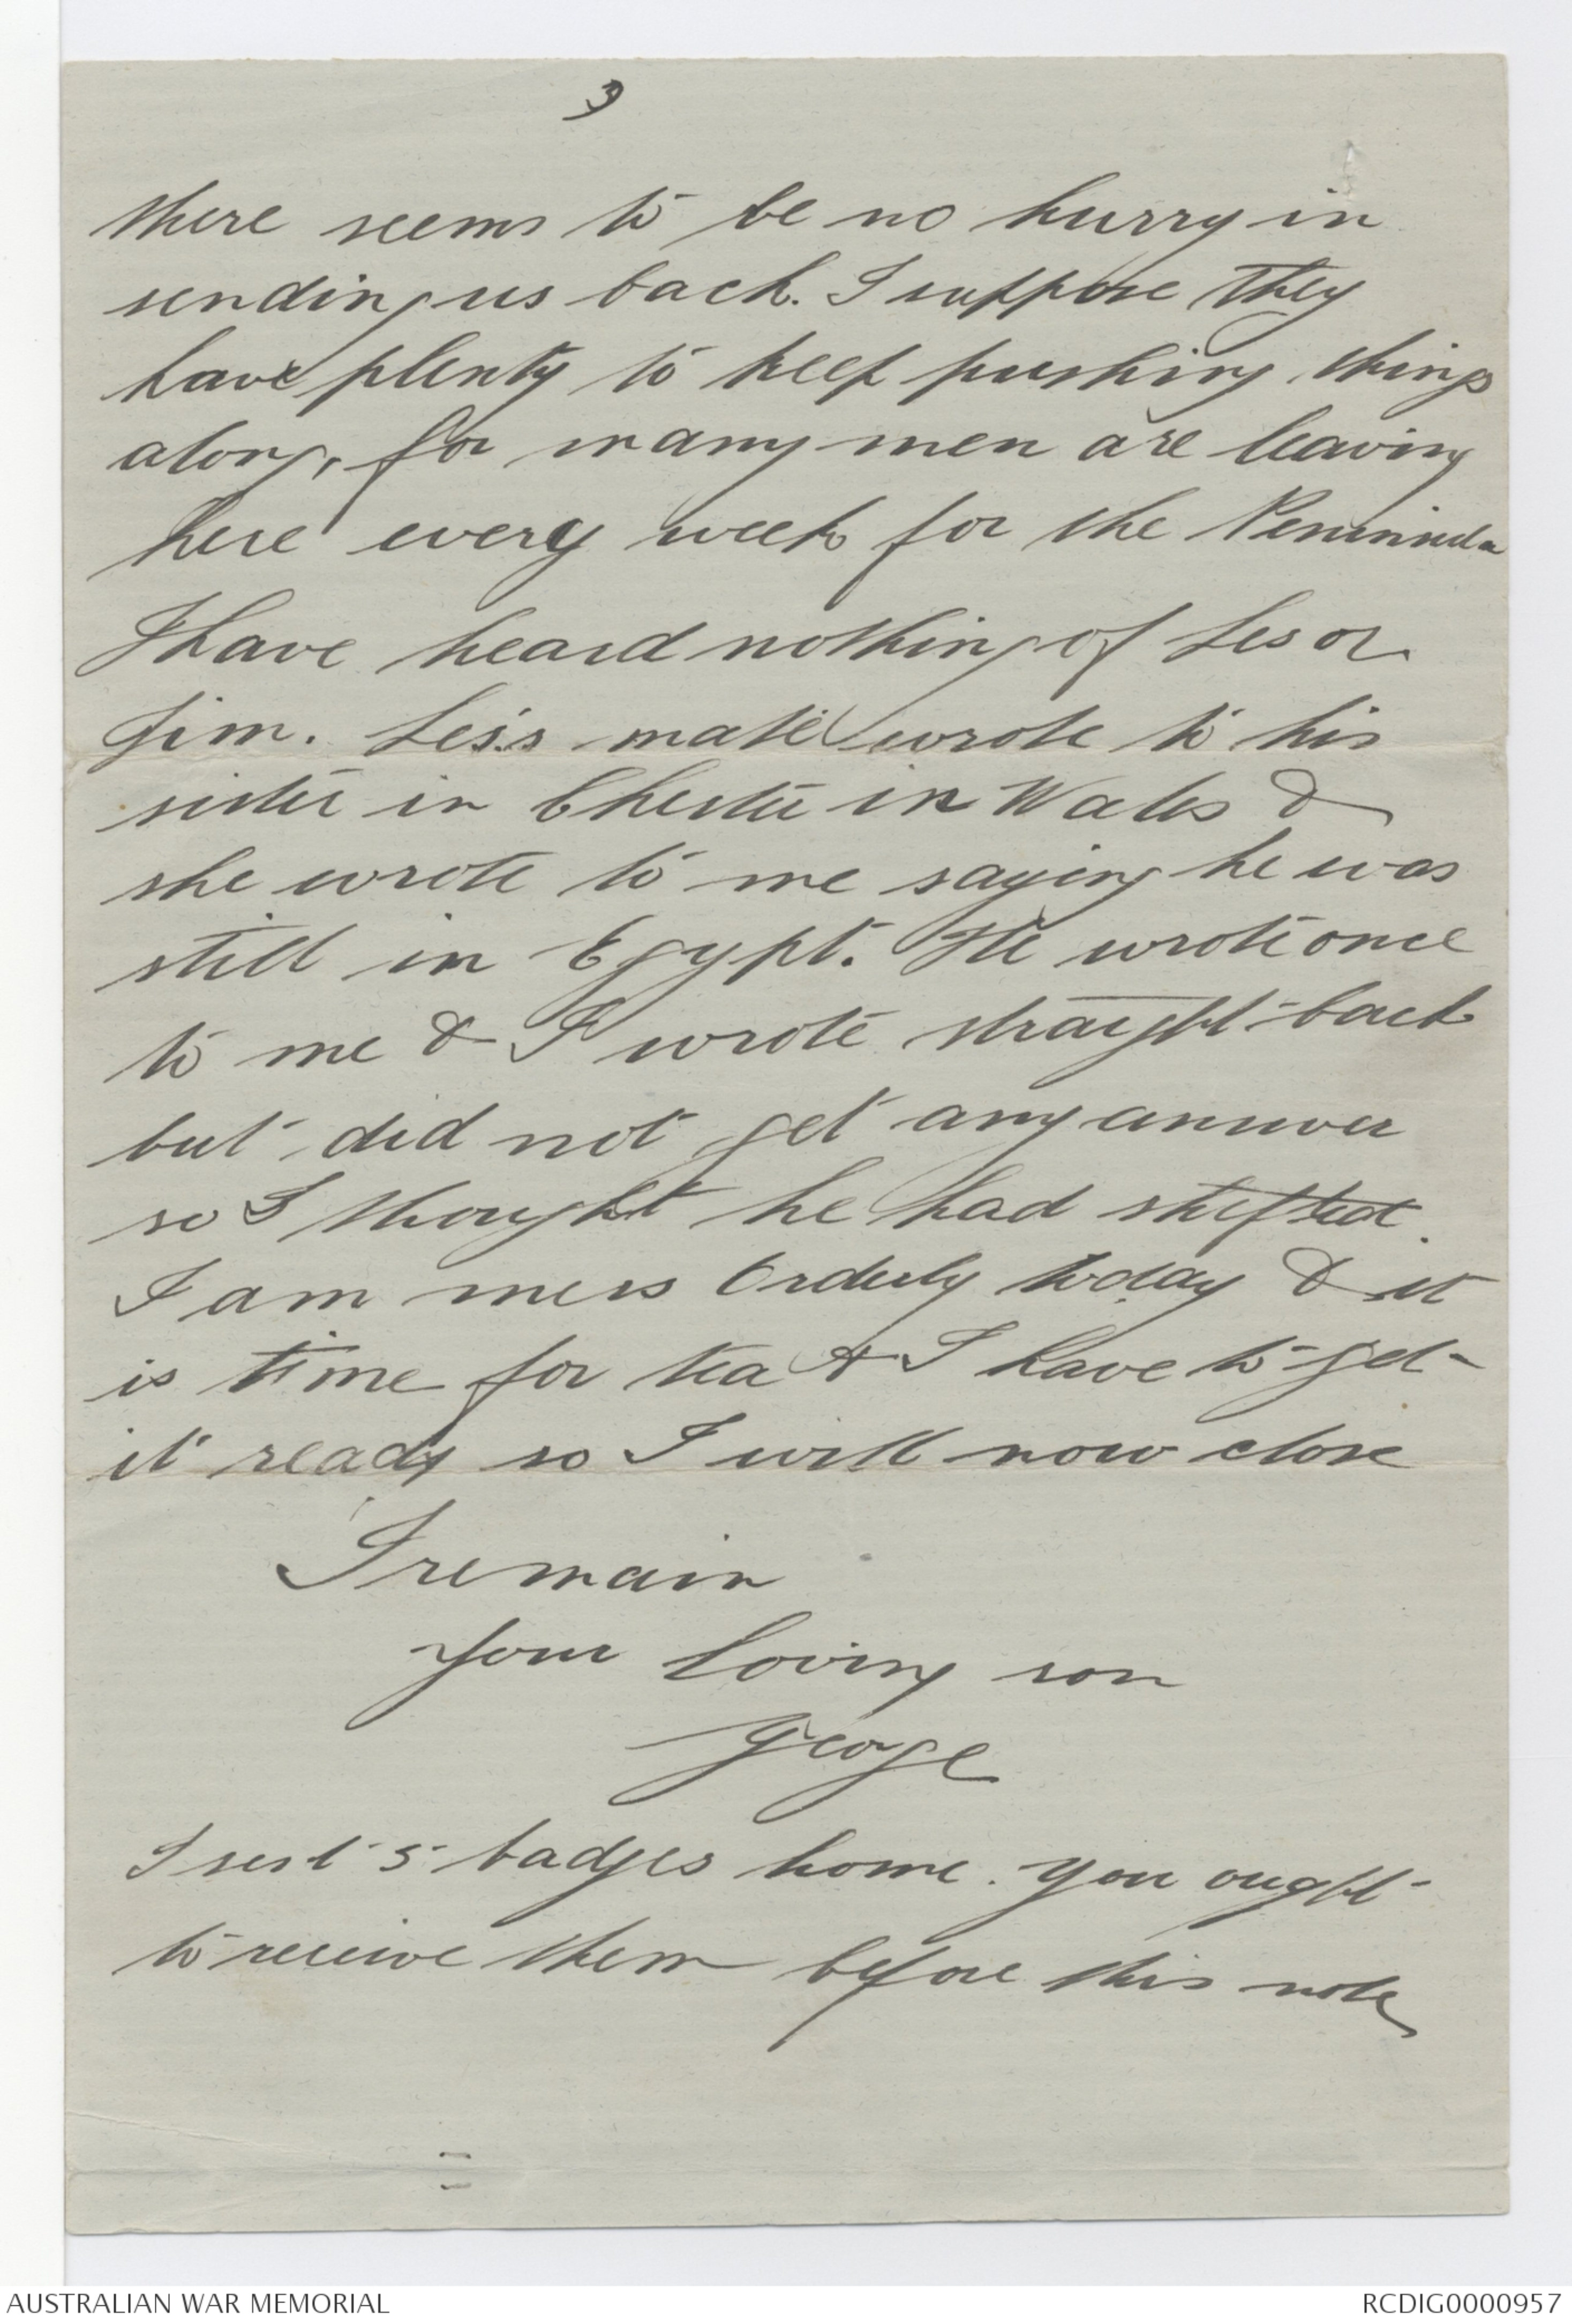 3
there seems to be no hurry in
sending us back. I suppose they
have plenty to keep pushing things
along, for many men are leaving
here every week for the Peninsula
I have heard nothing of Les or
Jim. Les's mate wrote to his
sister in Chester in Wales &
she wrote to me saying he was
still in Egypt. He wrote once
to me & I wrote straight back
but did not get any answer
so I thought he had shifted.
I am mess Orderly today & it
is time for tea & I have to get
it ready so I will now close
I remain
Your loving son
George
I sent 5 badges home. You ought
to receive them before this note
AUSTRALIAN WAR MEMORIAL
RCDIG0000957